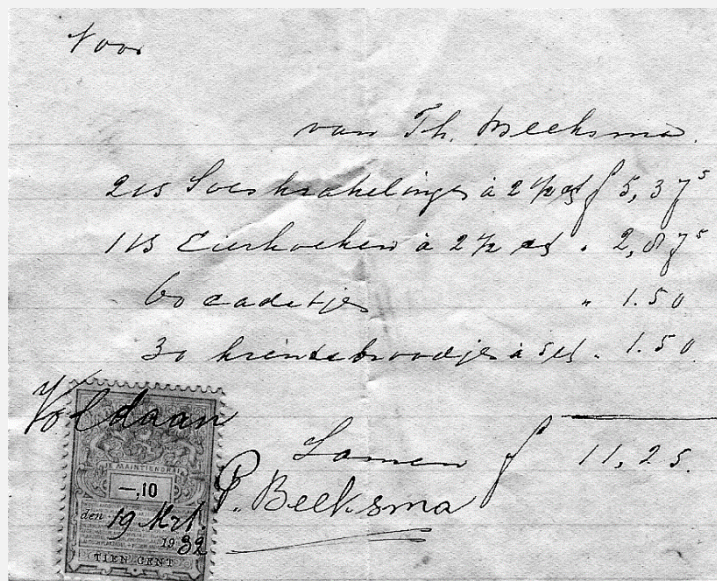 Voor
van Th. Beeksma.
215 Soeskrakelingen à 2 1/2 ct f 5,37⁵
115 Eierkoeken à 2 1/2 ct " 2,87⁵
60 cadetjes " 1.50
30 krintebroodjes à 5 ct " 1.50
Samen f 11,25.
Voldaan
P. Beeksma
JE MAINTIENDRAI
—,10
den 19 Mrt.
1932
TIEN CENT